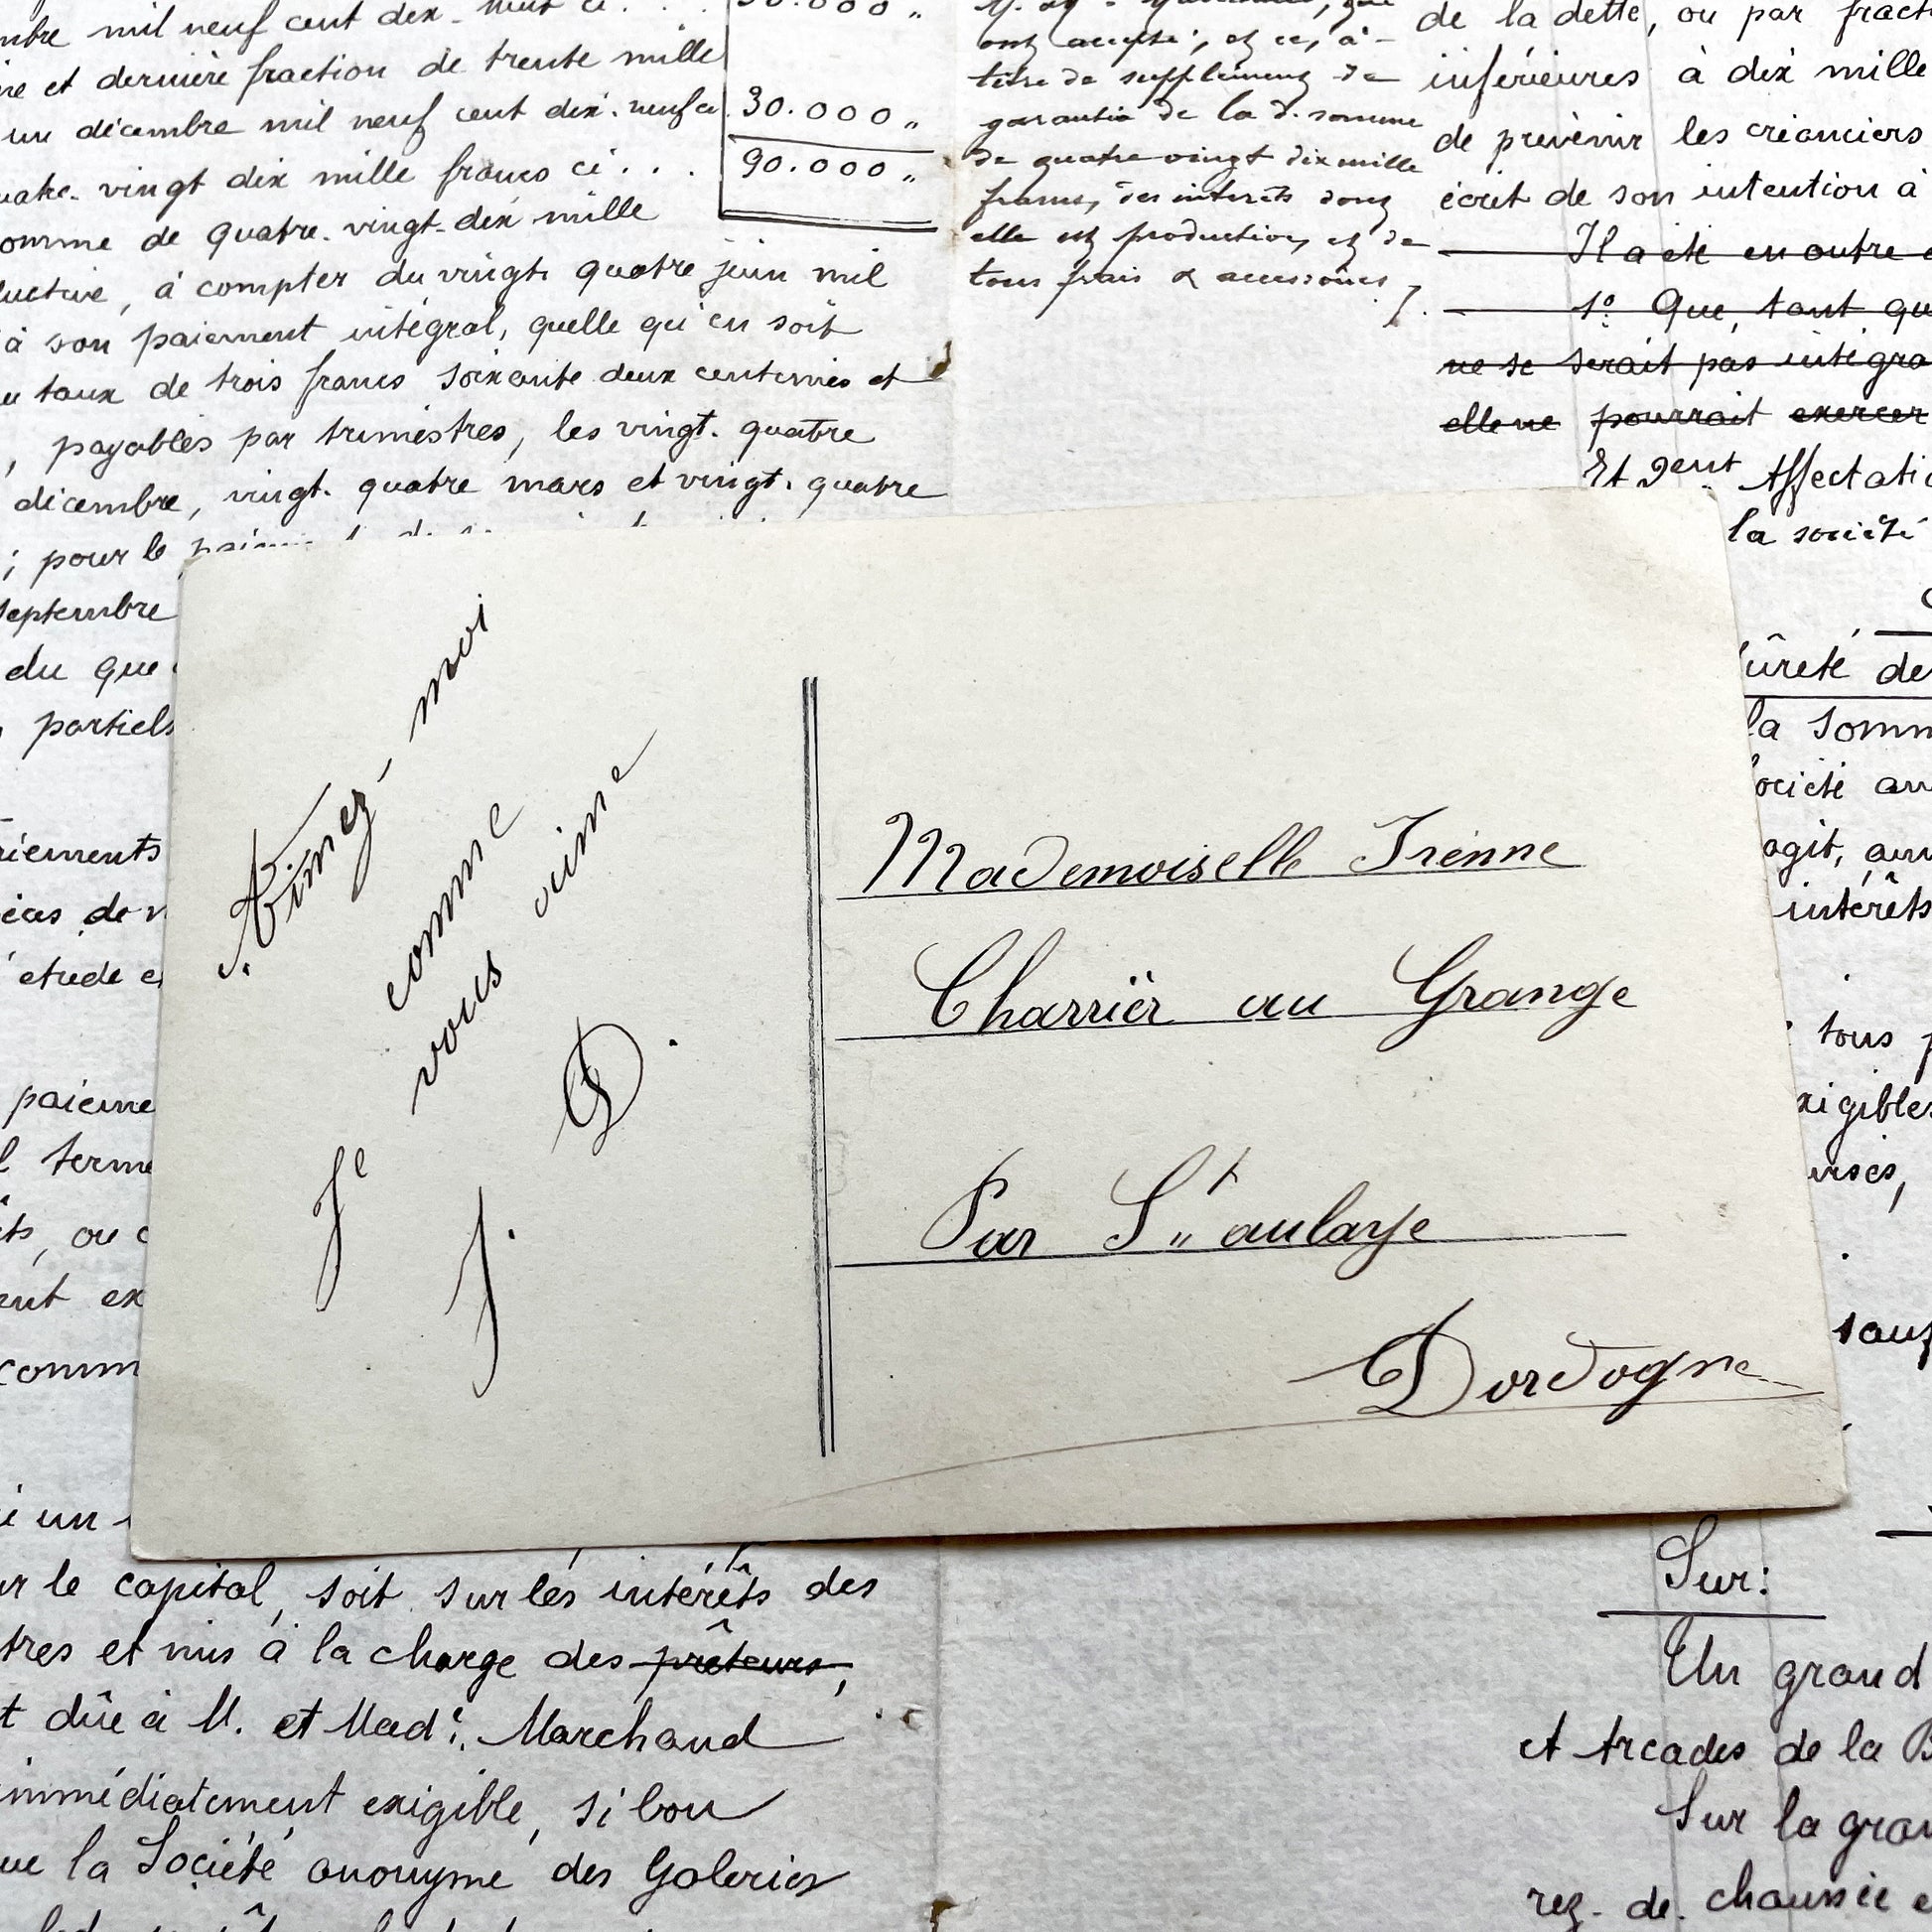 mil neuf cent dix-
re et dernière fraction de trente mille
un décembre mil neuf cent dix. neuf ci 30.000 "
vingt dix mille francs ci . . . 90.000 "
omme de quatre. vingt-dix mille
luctive, à compter du vingt. quatre juin mil
à son paiement intégral, quelle qu'en soit
u taux de trois francs soixante deux centimes et
, payables par trimestres, les vingt. quatre
décembre, vingt. quatre mars et vingt. quatre
; pour le
septembre
du que
partiels
iements
de
étude e
paieme
l terme
ts, ou
ent ex
comm
i un
ur le capital, soit sur les intérêts des
tres et mis à la charge des prêteurs,
t dûe à M. et Made. Marchand
immédiatement exigible, si bon
ue la Société anonyme des Galeries
ont accepté, et ce, à
titre de supplément de
garantie de la d. somme
de quatre vingt dix mille
francs, des intérêts dont
elle est production, et de
tous frais & accessoires
de la dette, ou par fracti
inférieures à dix mille
de prévenir les créanciers
écrit de son intention à
Il a été en outre
1° Que, tant qu
ne se serait pas intégra
elle ne pourrait exercer
Et 2ent Affectatio
la société
ûreté de
la somm
ociété an
agit, au
intérêts
tous p
xigibles
urses,
sauf
"Aimez-moi
comme
Je vous aime
J. D.
Mademoiselle Irènne
Charrièr au Grange
Par St" aulaye
Dordogne
Sur:
Un grand
et Arcades de la B
Sur la gran
rez-de-chaussée e